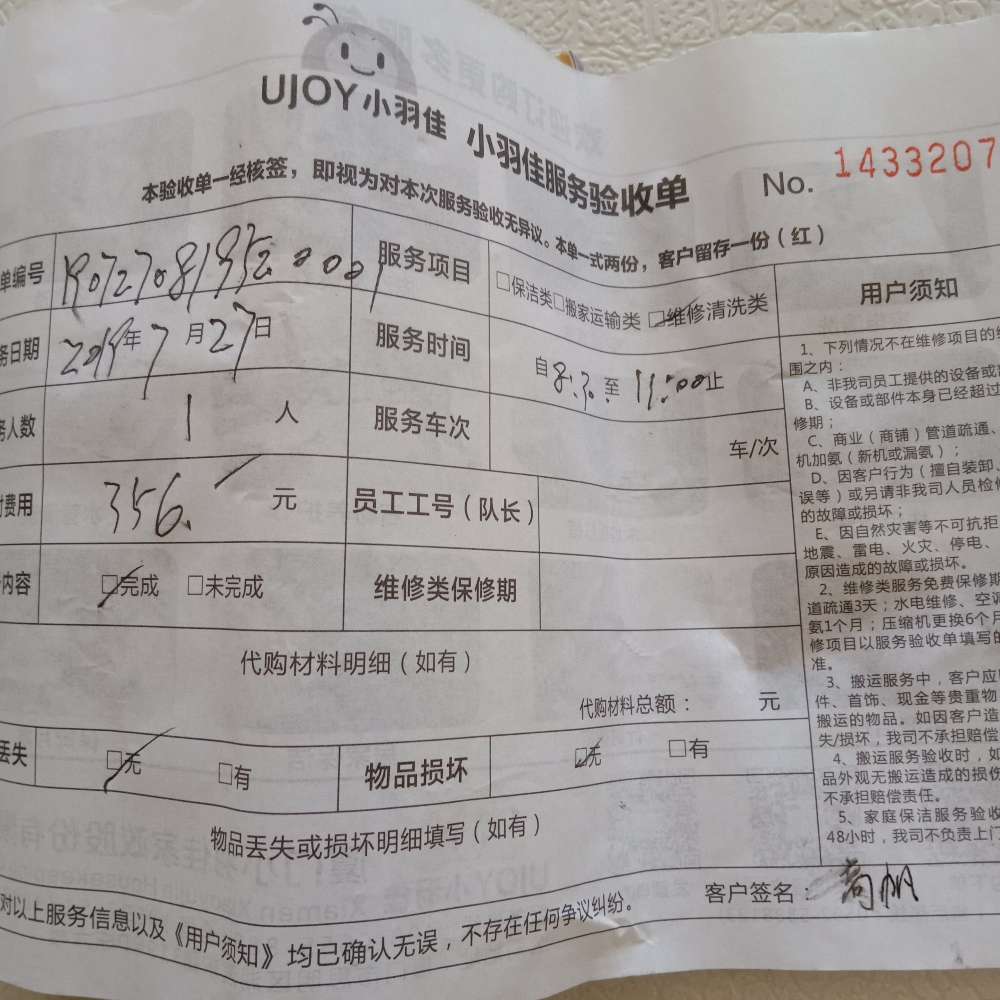 UJOY小羽佳 小羽佳服务验收单 No. 1433207
本验收单一经核签，即视为对本次服务验收无异议。本单一式两份，客户留存一份（红）
单编号 服务项目 □保洁类□搬家运输类 □维修清洗类
务日期 2019年7月27日 服务时间 自8:30至11:00止
务人数 1人 服务车次 车/次
付费用 356. 元 员工工号（队长）
内容 □完成 □未完成 维修类保修期
代购材料明细（如有）
代购材料总额： 元
丢失 □无 □有 物品损坏 □无 □有
物品丢失或损坏明细填写（如有）
对以上服务信息以及《用户须知》均已确认无误，不存在任何争议纠纷。
客户签名：
用户须知
1、下列情况不在维修项目的
围之内：
A、非我司员工提供的设备或
B、设备或部件本身已经超过
修期；
C、商业（商铺）管道疏通、
机加氨（新机或漏氨）；
D、因客户行为（擅自装卸、
误等）或另请非我司人员检修
的故障或损坏；
E、因自然灾害等不可抗拒
地震、雷电、火灾、停电、
原因造成的故障或损坏。
2、维修类服务免费保修期
道疏通3天；水电维修、空调
氨1个月；压缩机更换6个月
修项目以服务验收单填写的
准。
3、搬运服务中，客户应
件、首饰、现金等贵重物
搬运的物品。如因客户造
失/损坏，我司不承担赔偿
4、搬运服务验收时，如
品外观无搬运造成的损伤
不承担赔偿责任。
5、家庭保洁服务验收
48小时，我司不负责上门